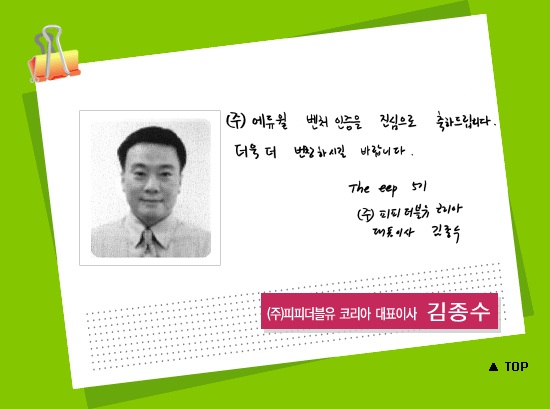 (주) 에듀윌 벤처 인증을 진심으로 축하드립니다.
더욱 더 번창하시길 바랍니다.
The eep 5기
(주) 피피더블유 코리아
대표이사 김종수
(주)피피더블유 코리아 대표이사 김종수
▲ TOP